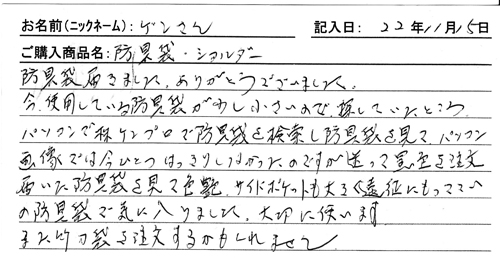 お名前(ニックネーム): ゲンさん 記入日: 22年11月15日
ご購入商品名: 防具袋・ショルダー
防具袋届きました。ありがとうございました。
今、使用している防具袋が少し小さいので、探していたところ
パソコンで ケンプロで防具袋を検索し防具袋を見て、パソコン
画像では今ひとつはっきりしなかったのですが思 って黒色を注文
届いた防具袋を見て色艶、サイドポケットも大きく遠征にもってこい
の防具袋で気に入りました。大切に使います
また竹刀袋を注文するかもしれません